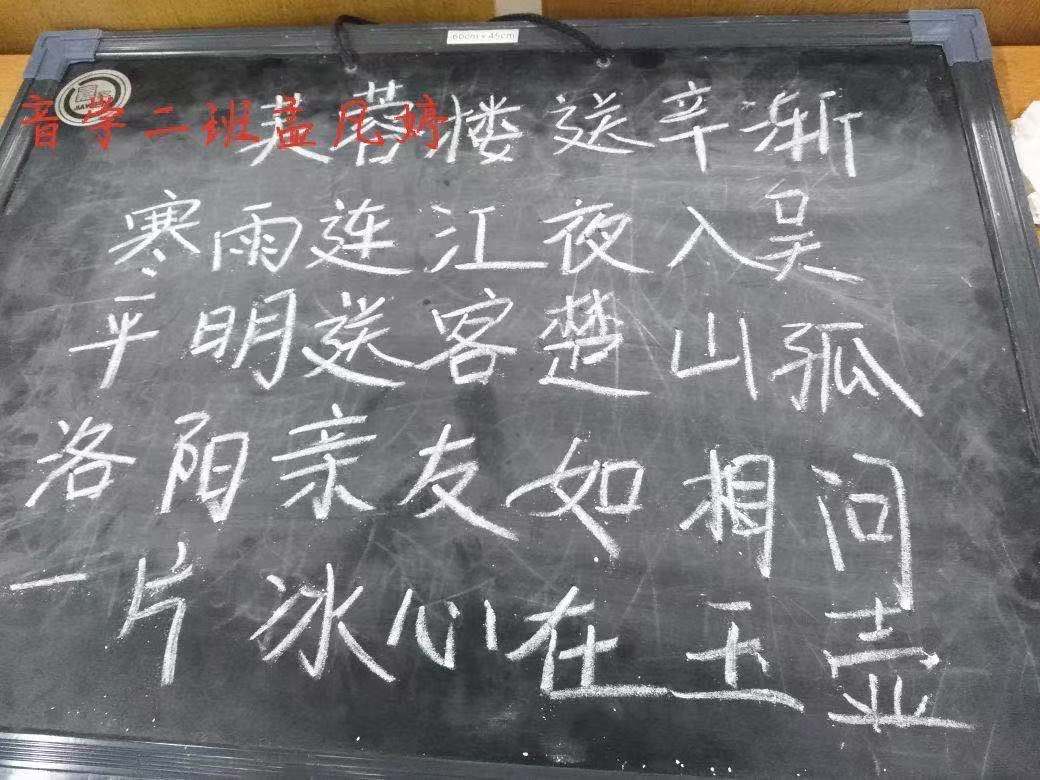 60cm×45cm
音学二班孟凡婷
芙蓉楼送辛渐
寒雨连江夜入吴
平明送客楚山孤
洛阳亲友如相问
一片冰心在玉壶